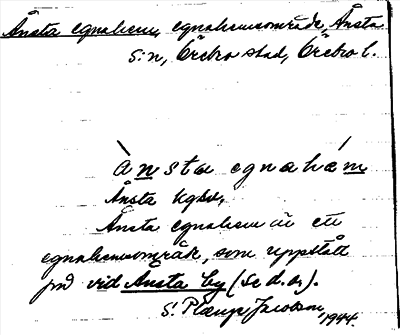 Ånsta egnahem, egnahemsområde, Ånsta
s:n, Örebro stad, Örebro l.
ànsta egnahém
Ånsta kgsv.
Ånsta egnahem är ett
egnahemsområde, som uppstått
på vid Ånsta by (Se d.o.).
S. Jacobson, 1944.